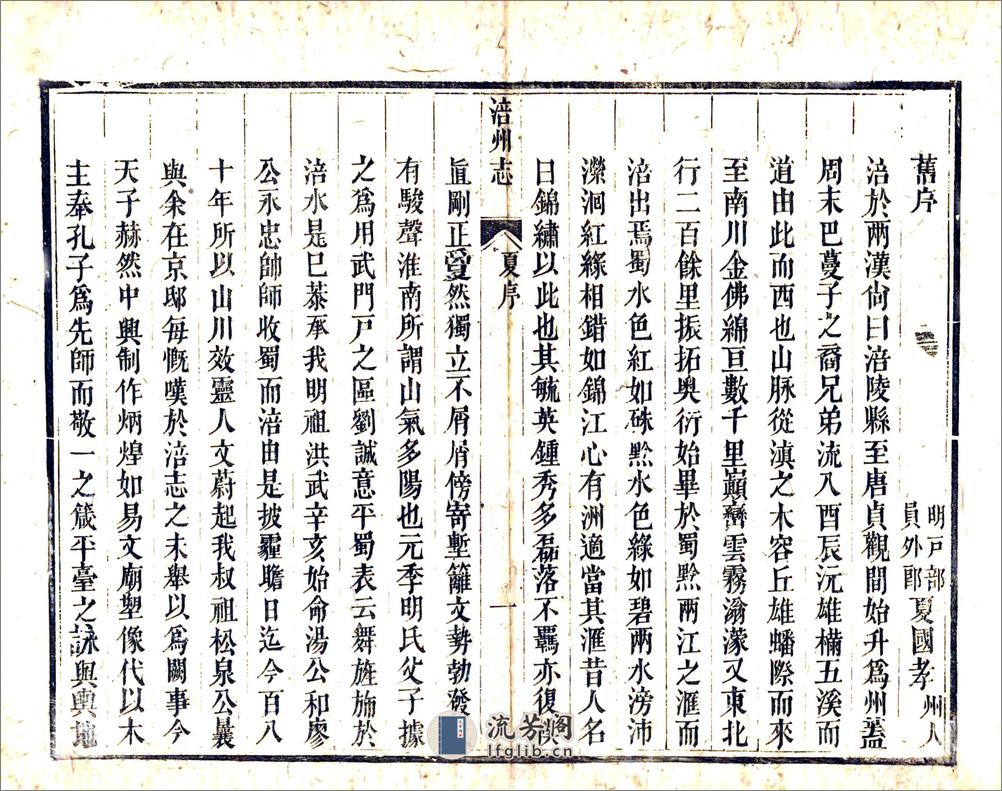 舊序
明戸部員外郎夏國孝州人
涪於兩漢尙曰涪陵縣至唐貞觀間始升爲州蓋
周末巴蔓子之裔兄弟流入酉辰沅雄橫五溪而
道由此而西也山脉從滇之木容丘雄蟠際而來
至南川金佛綿亘數千里巔巒雲霧滃濛又東北
行二百餘里振拓奥衍始畢於蜀黔兩江之滙而
涪出焉蜀水色紅如硃黔水色綠如碧兩水滂沛
瀠洄紅綠相錯如錦江心有洲適當其滙昔人名
曰錦繡以此也其毓英鍾秀多磊落不羈亦復
涪州志
夏序
一
眞剛正夐然獨立不屑屑傍寄塹籬文勢勃發
有駿聲淮南所謂山氣多陽也元季明氏父子據
之爲用武門戸之區劉誠意平蜀表云舞旌斾於
涪水是已恭承我明祖洪武辛亥始命湯公和廖
公永忠帥師收蜀而涪由是披霾瞻日迄今百八
十年所以山川效靈人文蔚起我叔祖松泉公曩
與余在京邸每慨嘆於涪志之未舉以爲闕事今
天子赫然中興制作炳煌如易文廟塑像代以木
主奉孔子爲先師而敬一之箴平臺之詠與輿地
流芳閣
lfglib.cn